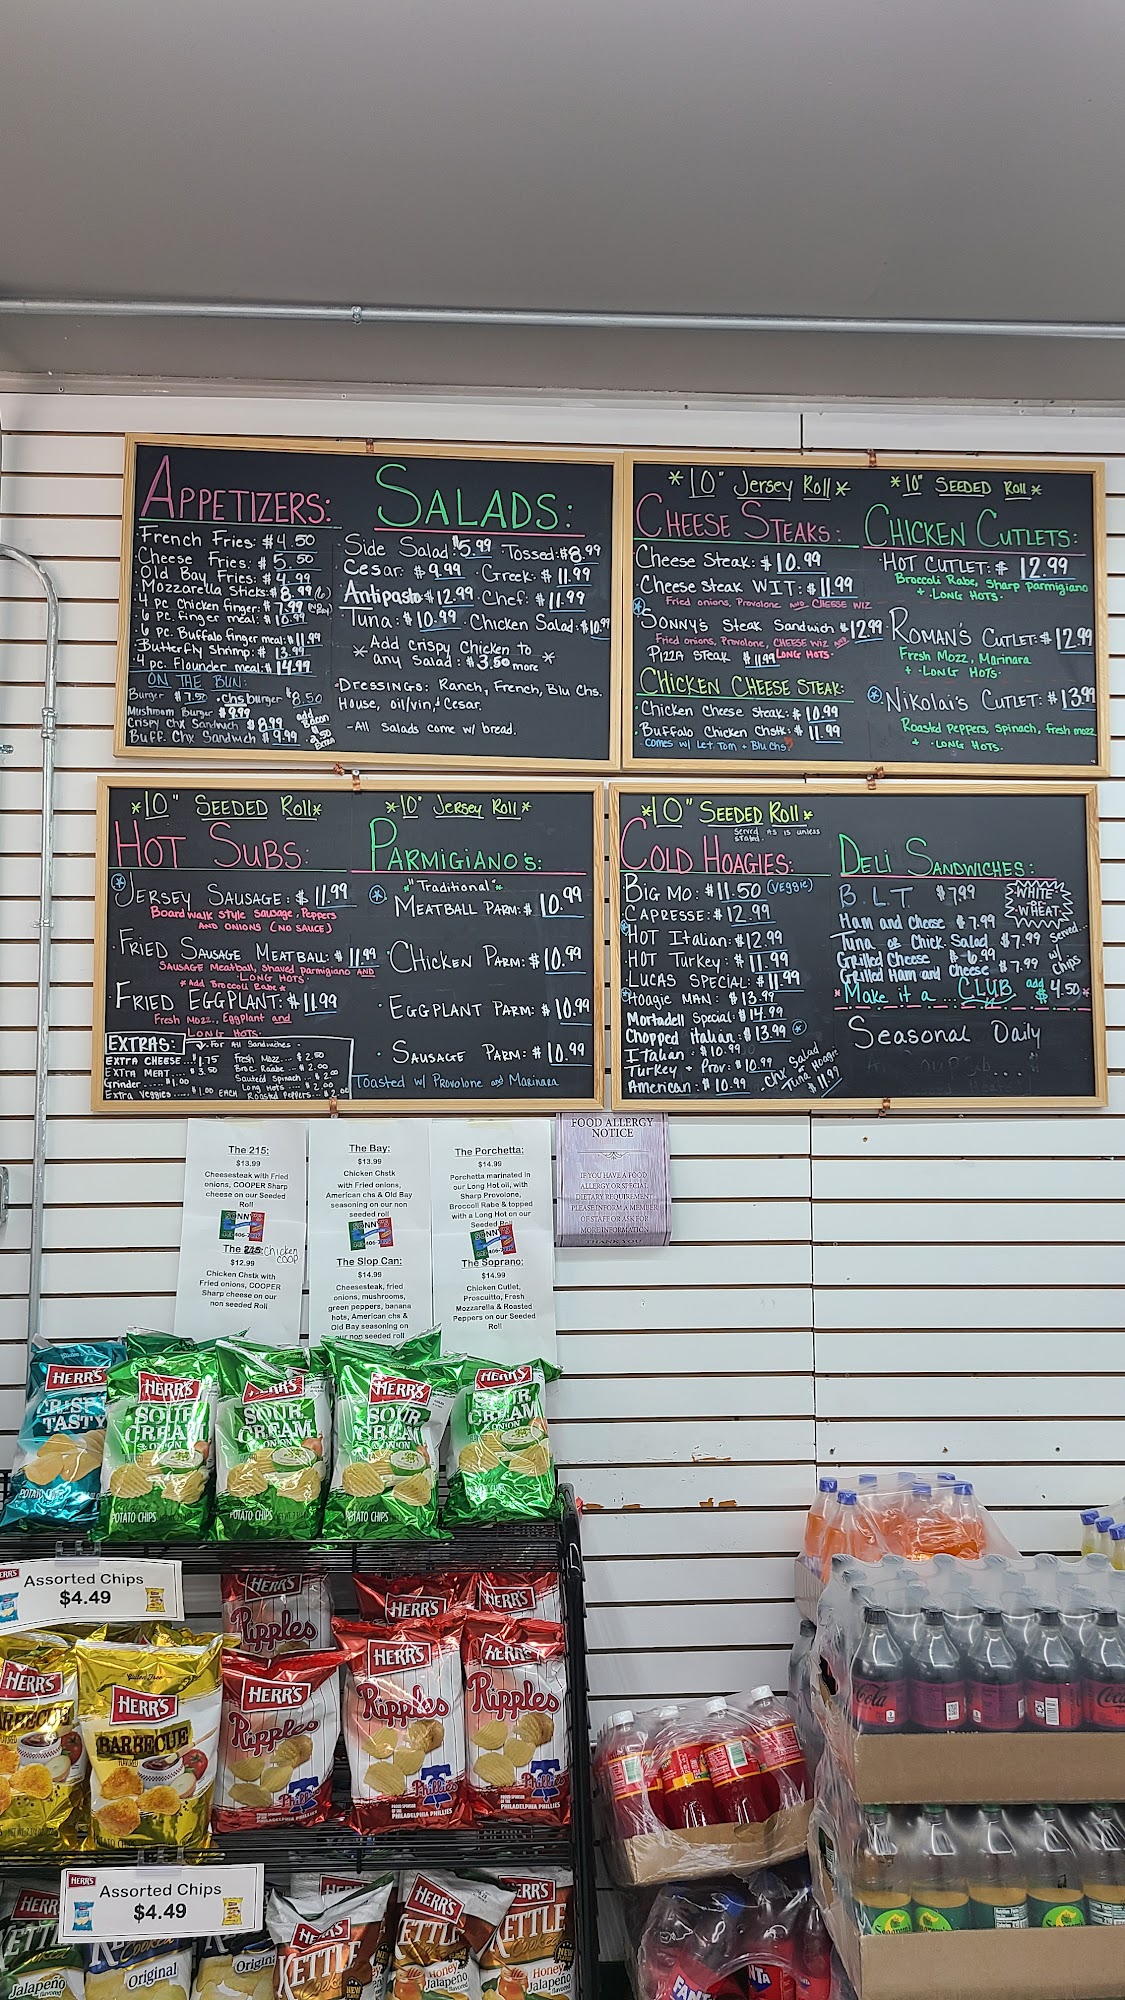 APPETIZERS:
French Fries: $4.50
Cheese Fries: $5.50
Old Bay Fries: $4.99
Mozzarella Sticks: $8.99 (6)
4 pc Chicken finger: $7.99
6 pc. finger meal: $10.99
6 pc. Buffalo finger meal: $11.99
Butterfly Shrimp: $13.99
4 pc. Flounder meal: $14.99
ON THE BUN:
Burger $7.50 · chsburger $8.50
Mushroom Burger $9.99
Crispy Chx Sandwich $8.99
Buff. Chx Sandwich $9.99
add Bacon $2.50 Extra
SALADS:
Side Salad: $5.99 · Tossed: $8.99
Cesar: $9.99 · Greek: $11.99
Antipasto $12.99 · Chef: $11.99
Tuna: $10.99 · Chicken Salad: $10.99
* Add crispy Chicken to *
any Salad: $3.50 more
· DRESSINGS: Ranch, French, Blu Chs.
House, oil/vin, & Cesar.
- All Salads come w/ bread.
*10" Jersey Roll*
CHEESE STEAKS:
Cheese Steak: $10.99
Cheese Steak WIT: $11.99
Fried onions, Provolone AND CHEESE WIZ
SONNY'S Steak Sandwich $12.99
Fried onions, Provolone, CHEESE WIZ AND
LONG HOTS.
PIZZA STEAK $11.99
CHICKEN CHEESE STEAK:
Chicken Cheese Steak: $10.99
Buffalo Chicken Chstk: $11.99
comes w/ Let Tom + Blu Chs
*10" SEEDED Roll*
CHICKEN CUTLETS:
HOT CUTLET: $12.99
Broccoli Rabe, Sharp Parmigiano
+ · LONG HOTS ·
ROMAN'S CUTLET: $12.99
Fresh Mozz, Marinara
+ · LONG HOTS ·
Nikolai's CUTLET: $13.99
Roasted peppers, spinach, fresh mozz
+ · LONG HOTS ·
*10" SEEDED Roll*
HOT SUBS:
JERSEY SAUSAGE: $11.99
Boardwalk style sausage, Peppers
AND ONIONS (NO SAUCE)
FRIED SAUSAGE MEATBALL: $11.99
SAUSAGE Meatball, shaved parmigiano AND
· LONG HOTS ·
* Add Broccoli Rabe *
FRIED EGGPLANT: $11.99
Fresh Mozz, Eggplant and
LONG HOTS.
EXTRAS: For All Sandwiches
EXTRA CHEESE $1.75
EXTRA MEAT $3.50
Grinder $1.00
Extra Veggies $1.00 EACH
Fresh Mozz $2.50
Broc Raabe $2.00
Sauteed Spinach $2.00
Long Hots $2.00
Roasted Peppers $2.00
*10" Jersey Roll*
PARMIGIANO'S:
"Traditional"
MEATBALL PARM: $10.99
· CHICKEN PARM: $10.99
· EGGPLANT PARM: $10.99
· SAUSAGE PARM: $10.99
TOASTED w/ Provolone and Marinara
*10" SEEDED Roll*
Served AS is unless stated.
COLD HOAGIES:
BIG MO: $11.50 (veggie)
CAPRESSE: $12.99
HOT Italian: $12.99
HOT Turkey: $11.99
LUCAS SPECIAL: $11.99
Hoagie MAN: $13.99
Mortadell Special: $14.99
Chopped Italian: $13.99
Italian: $10.99
Turkey + Prov: $10.99
American: $10.99
Chx Salad or Tuna Hoagie $11.99
DELI SANDWICHES:
B.L.T $7.99
Ham and Cheese $7.99
Tuna or Chick. Salad $7.99
Grilled Cheese $6.99
Grilled Ham and Cheese $7.99
WHITE OR WHEAT
Served... w/ chips
* Make it a ... CLUB add $4.50 *
Seasonal Daily
The 215:
$13.99
Cheesesteak with Fried
onions, COOPER Sharp
cheese on our Seeded
Roll
SONNY'S
The 215: Chicken COOP
$12.99
Chicken Chstk with
Fried onions, COOPER
Sharp cheese on our
non seeded Roll
The Bay:
$13.99
Chicken Chstk
with Fried onions,
American chs & Old Bay
seasoning on our non
seeded roll
SONNY'S
The Slop Can:
$14.99
Cheesesteak, fried
onions, mushrooms,
green peppers, banana
hots, American chs &
Old Bay seasoning on
our non seeded roll
The Porchetta:
$14.99
Porchetta marinated in
our Long Hot oil, with
Sharp Provolone,
Broccoli Rabe & topped
with a Long Hot on our
Seeded Roll
SONNY'S
The Soprano:
$14.99
Chicken Cutlet,
Proscuitto, Fresh
Mozzarella & Roasted
Peppers on our Seeded
Roll
FOOD ALLERGY
NOTICE
IF YOU HAVE A FOOD
ALLERGY OR SPECIAL
DIETARY REQUIREMENT
PLEASE INFORM A MEMBER
OF STAFF OR ASK FOR
MORE INFORMATION
THANK YOU
HERR'S
CRISP
TASTY
POTATO CHIPS
HERR'S
SOUR
CREAM
& ONION
POTATO CHIPS
HERR'S
SOUR
CREAM
& ONION
POTATO CHIPS
HERR'S
SOUR
CREAM
& ONION
POTATO CHIPS
HERR'S
SOUR
CREAM
& ONION
POTATO CHIPS
Assorted Chips
$4.49
HERR'S
Ripples
HERR'S
HERR'S
HERR'S
BARBECUE
HERR'S
BARBECUE
FLAVORED
POTATO CHIPS
HERR'S
Ripples
Phillies
PHILADELPHIA PHILLIES
HERR'S
Ripples
Phillies
PHILADELPHIA PHILLIES
HERR'S
Ripples
Phillies
PHILADELPHIA PHILLIES
HERR'S
Assorted Chips
$4.49
HERR'S
KETTLE
Jalapeño
flavored
Original
Original
HERR'S
KETTLE
Cooked
HERR'S
KETTLE
Cooked
Honey
Jalapeño
flavored
HERR'S
KETTLE
Honey
Jalapeño
flavored
Coca-Cola
Seagram's
FANTA
FANTA